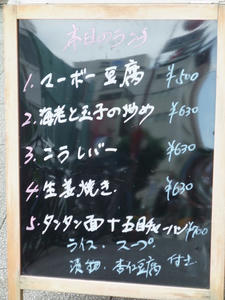 本日のランチ
1. マーボー豆腐 ¥500
2. 海老と玉子の炒め ¥630
3. ニラレバー ¥630
4. 生姜焼き ¥630
5. タンタン面+五目チャーハン ¥700
ライス スープ
漬物 杏仁豆腐 付き